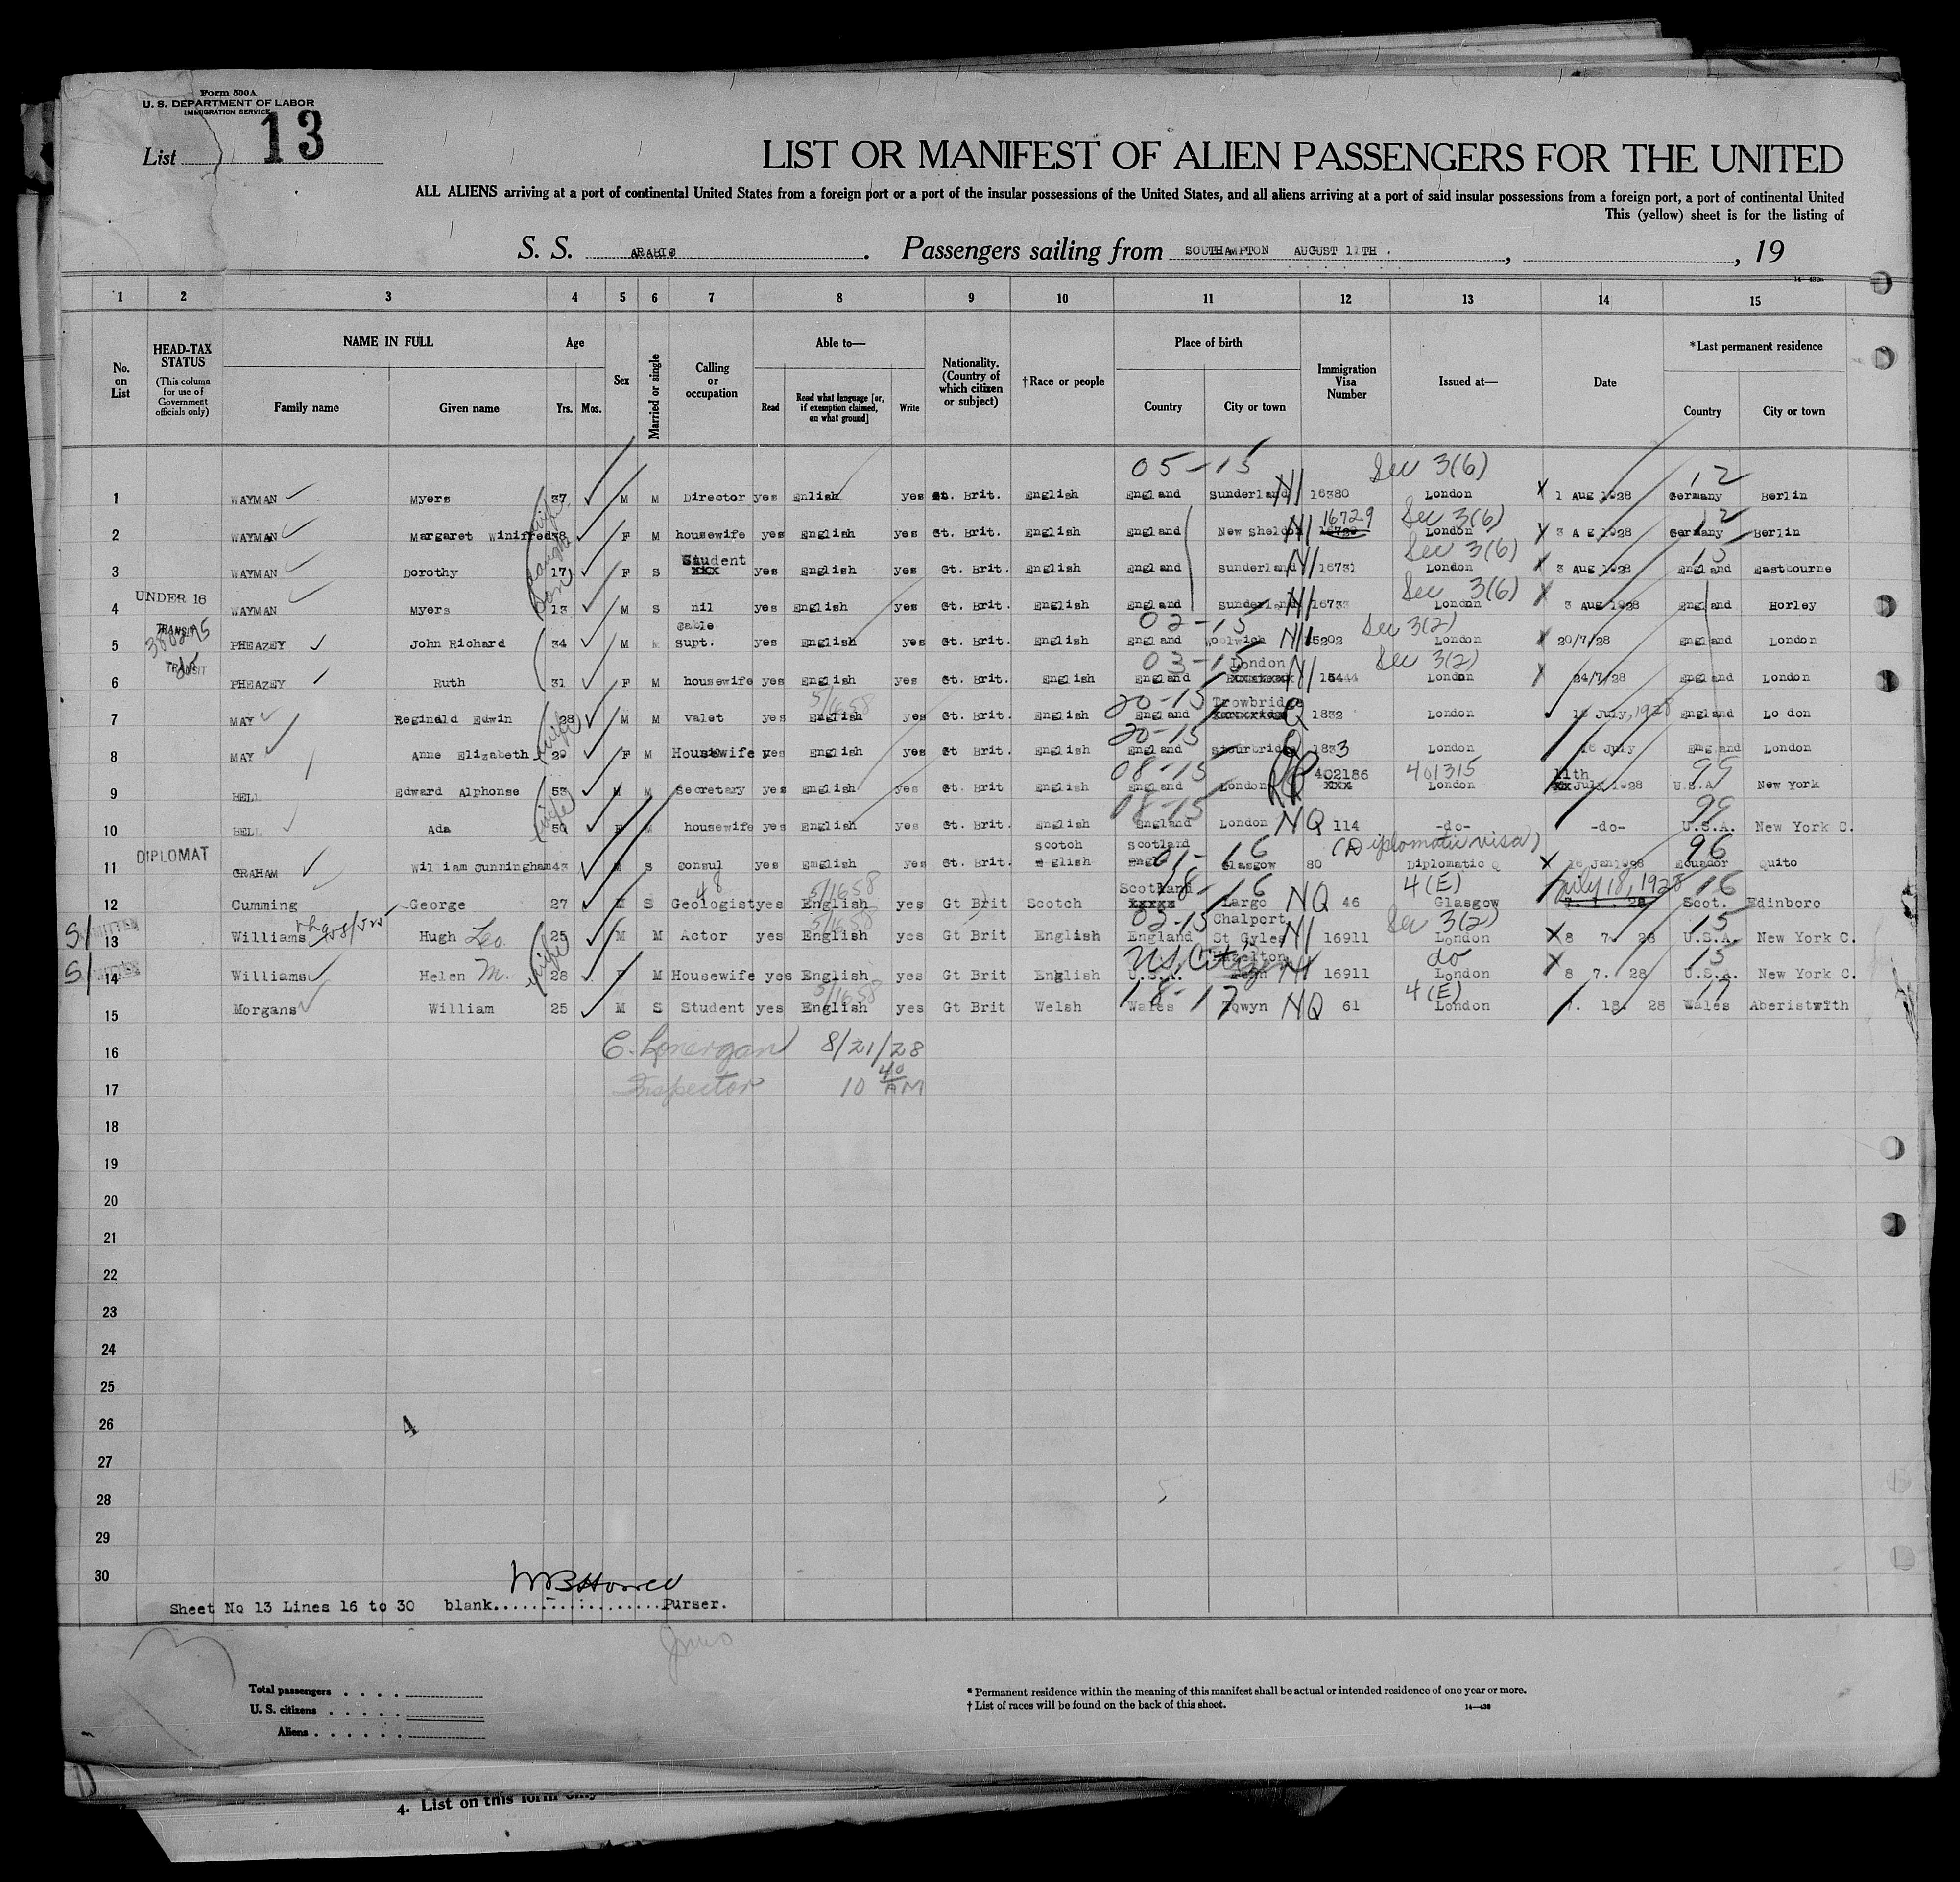 Form 500A
U. S. DEPARTMENT OF LABOR
IMMIGRATION SERVICE
List 13
LIST OR MANIFEST OF ALIEN PASSENGERS FOR THE UNITED
ALL ALIENS arriving at a port of continental United States from a foreign port or a port of the insular possessions of the United States, and all aliens arriving at a port of said insular possessions from a foreign port, a port of continental United
This (yellow) sheet is for the listing of
S. S. ARABIC . Passengers sailing from SOUTHAMPTON AUGUST 11TH . , , 19
1 2 3 4 5 6 7 8 9 10 11 12 13 14 15
No. on List
HEAD-TAX STATUS (This column for use of Government officials only)
NAME IN FULL Family name Given name
Age Yrs. Mos.
Sex
Married or single
Calling or occupation
Able to— Read Read what language [or, if exemption claimed, on what ground] Write
Nationality. (Country of which citizen or subject)
†Race or people
Place of birth Country City or town
Immigration Visa Number
Issued at—
Date
*Last permanent residence Country City or town
05-15 Sec 3(6) 12
1 WAYMAN Myers 37 M M Director yes Enlish yes Gt. Brit. English England Sunderland NI 16380 London 1 Aug 1928 Germany Berlin
16729 Sec 3(6) 12
2 WAYMAN Margaret Winifred 38 F M housewife yes English yes Gt. Brit. English England New Sheldon NI London 3 A g 1928 Germany Berlin
Student Sec 3(6) 15
3 WAYMAN Dorothy 17 F S xxx yes English yes Gt. Brit. English England Sunderland NI 16731 London 3 Aug 1928 England Eastbourne
UNDER 16 Sec 3(6)
4 WAYMAN Myers 13 M S nil yes English yes Gt. Brit. English England Sunderland NI 1673 London 3 Aug 1928 England Horley
TRANSIT Cable 02-15 Sec 3(2)
5 PHEAZEY John Richard 34 M M Supt. yes English yes Gt. Brit. English England Woolwich NI 15202 London 20/7/28 England London
TRANSIT 03-15 London Sec 3(2)
6 PHEAZEY Ruth 31 F M housewife yes English yes Gt. Brit. English England NI 15444 London 24/7/28 England London
5/1658 20-15 Trowbridge
7 MAY Reginald Edwin 28 M M valet yes English yes Gt. Brit. English England Q 1832 London July, 1928 England Lo don
wife 20-15
8 MAY Anne Elizabeth 29 F M Housewife yes English yes Gt Brit. English England Stourbridge Q 1833 London 16 July England London
08-15 402186 401315 11th 99
9 BELL Edward Alphonse 53 M M Secretary yes English yes Gt. Brit English England London xxx London xx July 1928 U.S.A New York
wife 08-15 99
10 BELL Ada 50 F M housewife yes English yes Gt. Brit. English England London NQ 114 -do- -do- U.S.A. New York C.
DIPLOMAT scotch scotland 01-16 (Diplomatic visa) 96
11 GRAHAM William Cunningham 43 M S Consul yes English yes Gt. Brit. Glasgow 80 Diplomatic Q Ecuador Quito
48 5/1658 Scotland 18-16 4(E) July 18, 1928 16
12 Cumming George 27 M S Geologist yes English yes Gt Brit Scotch xxxxx Largo NQ 46 Glasgow Scot. Edinboro
5/1658 02-15 Chalport Sec 3(2) 15
SI 13 Williams Hugh Leo. 25 M M Actor yes English yes Gt Brit English England St Gyles NI 16911 London 8 7. 28 U.S.A. New York C.
wife US Citizen Hazelton do 15
SI 14 Williams Helen M. 28 F M Housewife yes English yes Gt Brit English U.S.A. Penn NI 16911 London 8 7. 28 U.S.A. New York C.
5/1658 18-17 4(E) 17
15 Morgans William 25 M S Student yes English yes Gt Brit Welsh Wales Towyn NQ 61 London 7. 18. 28 Wales Aberistwith
16 C. Lonergan 8/21/28
17 Inspector 10 40 AM
18
19
20
21
22
23
24
25
26 4
27
28
29
30
Sheet No 13 Lines 16 to 30 blank....................Purser.
Total passengers . . . .
U. S. citizens . . . . .
Aliens . . . . . .
* Permanent residence within the meaning of this manifest shall be actual or intended residence of one year or more.
† List of races will be found on the back of this sheet.
14—430
4. List on this form only